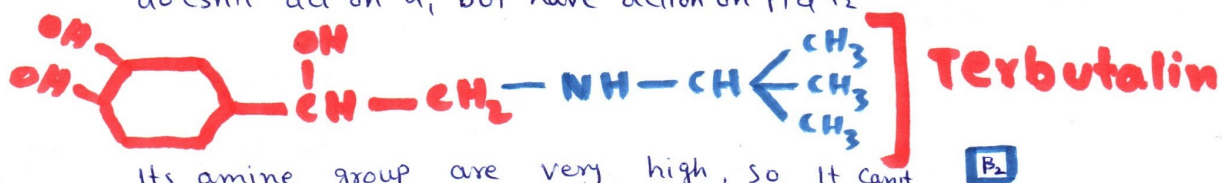 doesn't act on α, but have action on
OH
OH
OH
CH — CH₂ — NH — CH
CH₃
CH₃
CH₃
Terbutalin
Its amine group are very high, so It can't
β₂